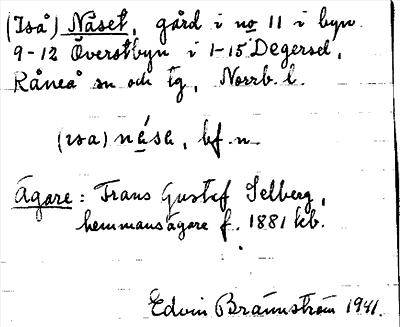 (Iså) Näset, gård i no 11 i byn
9-12 Överstbyn i 1-15 Degersel,
Råneå sn och tg, Norrb. l.
(ısa) nä́sə, bf. n.
Ägare: Frans Gustaf Selberg,
hemmansägare f. 1881 kb.
Edvin Brännström 1941.